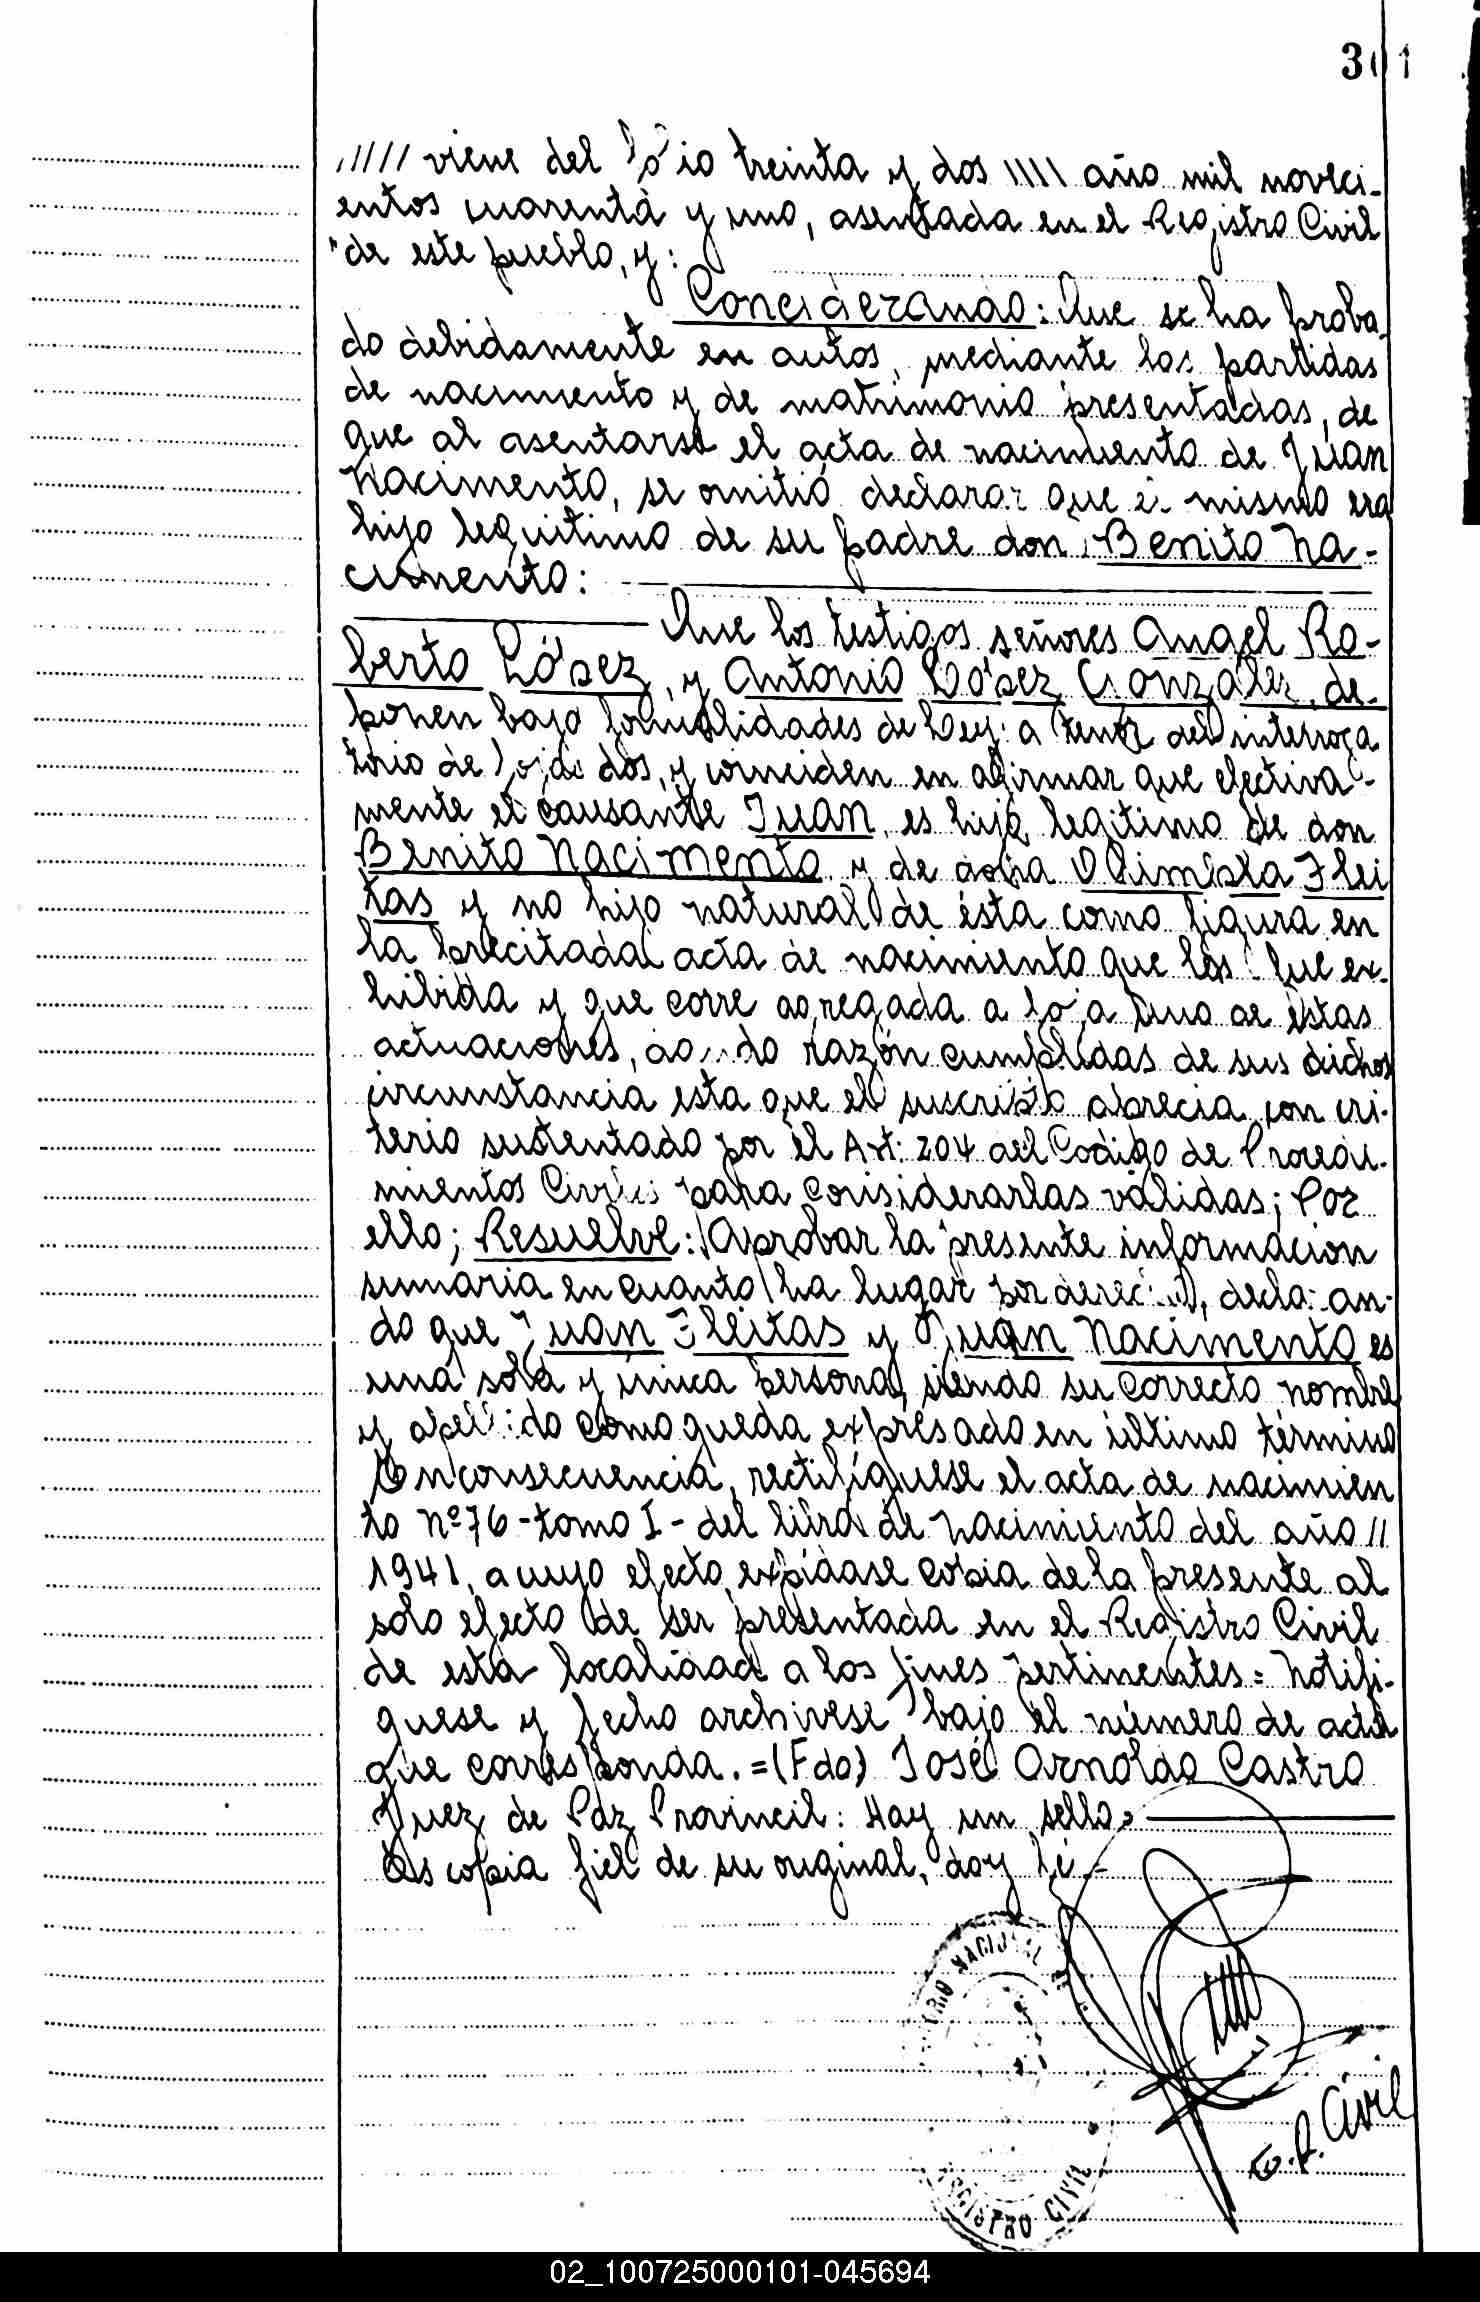 301
///// viene del folio treinta y dos //// año mil noveci-
entos cuarenta y uno, asentada en el Registro Civil
de este pueblo, y:
Conciderando: Que se ha proba-
do debidamente en autos, mediante las partidas
de nacimiento y de matrimonio presentadas, de
que al asentarse el acta de nacimiento de Juan
Nacimento, se omitió declarar que el mismo era
hijo legitimo de su padre don Benito Na-
cimento:
Que los testigos señores Angel Ro-
berto López, y Antonio López Gonzalez, de-
ponen bajo formalidades de Ley a tenor del interroga
torio de foja dos, y coinciden en afirmar que efectiva-
mente el causante Juan, es hijo legitimo de don
Benito Nacimento y de doña Olimpia Flei
tas y no hijo natural de ésta como figura en
la precitada acta de nacimiento que les fue ex-
hibida y que corre agregada a foja uno de estas
actuaciones, dando razón cumplidas de sus dichos
circunstancia esta que el suscripto aprecia con cri-
terio sustentado por el Art: 204 del Codigo de Procedi-
mientos Civiles para considerarlas válidas; Por
ello; Resuelve: Aprobar la presente informacion
sumaria en cuanto ha lugar por derecho, declaran-
do que Juan Fleitas y Juan Nacimento es
una sola y única persona, siendo su correcto nombre
y apellido como queda expresado en último término
En consecuencia, rectifíquese el acta de nacimien
to Nº 76 - tomo I - del libro de nacimiento del año //
1941, a cuyo efecto, expídase copia de la presente al
solo efecto de ser presentada en el Registro Civil
de esta localidad a los fines pertinentes = Notifi-
quese y fecho archivese bajo el número de acta
que corresponda. = (Fdo) José Arnoldo Castro
Juez de Paz Provincil: Hay un sello =
Es copia fiel de su original, doy fé -
REGISTRO CIVIL
R. Civil
02_100725000101-045694